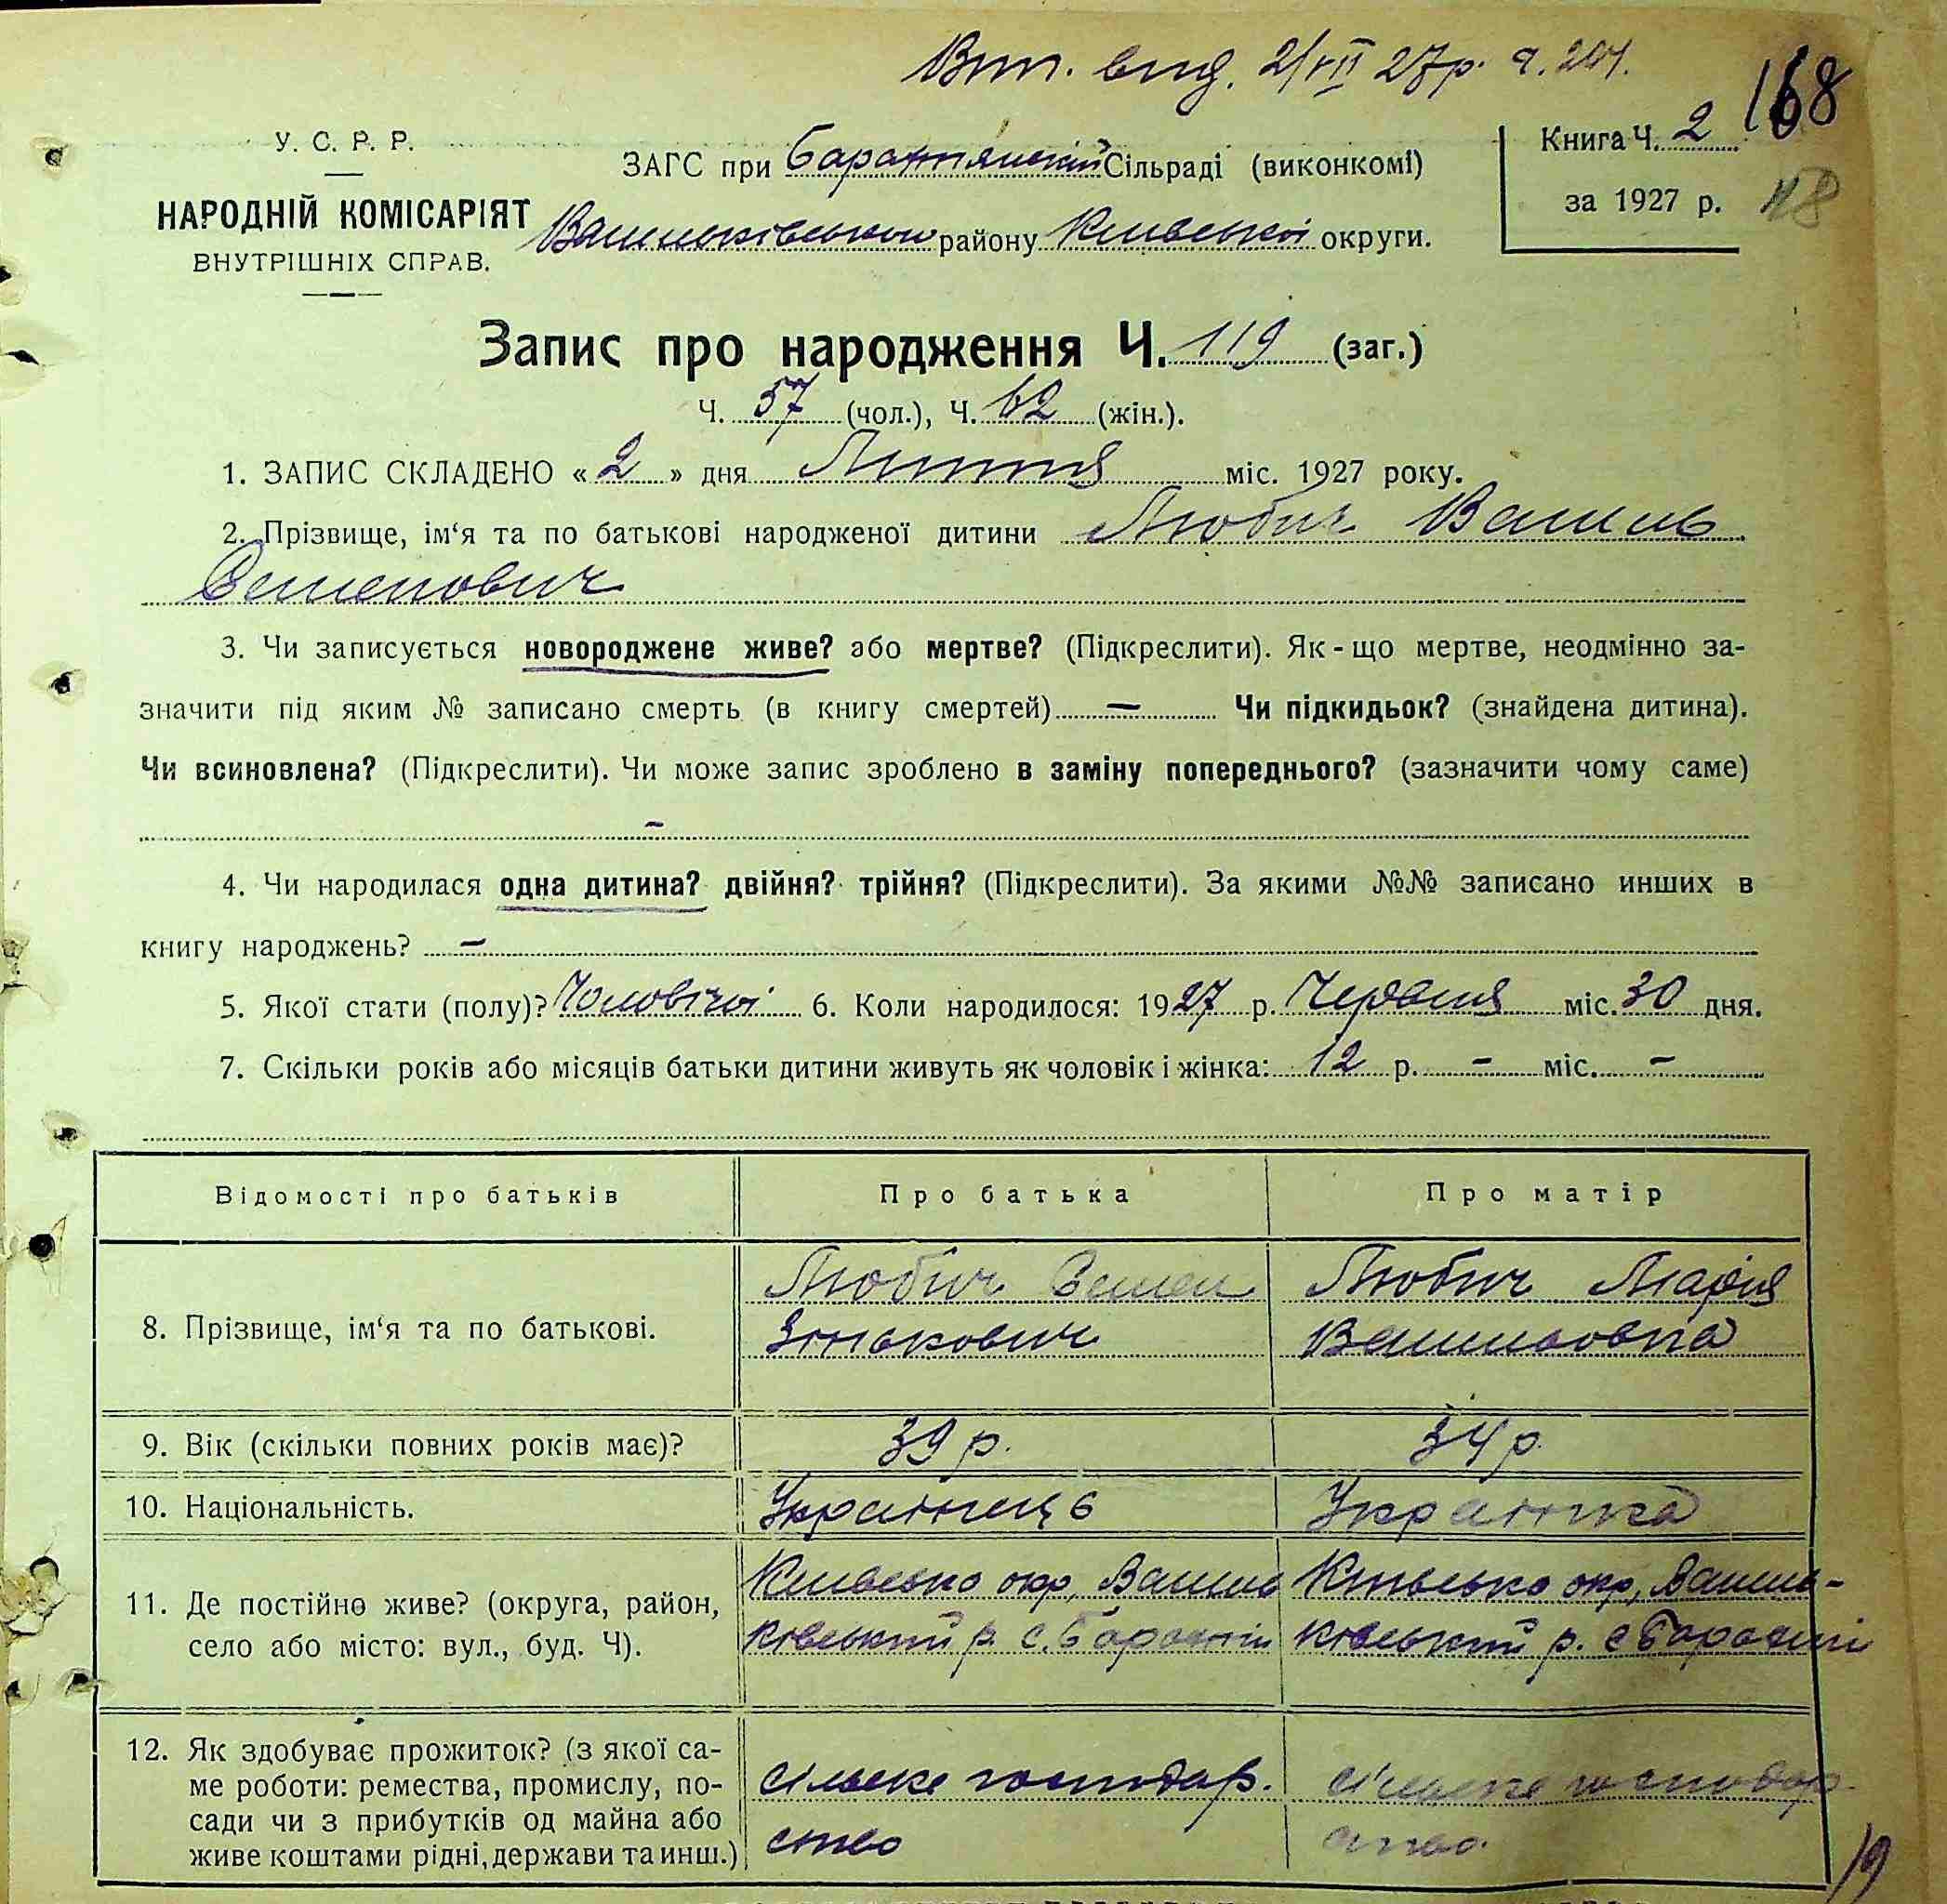 Вип. вид. 2/VII 27р. ч. 201.
168
У. С. Р. Р.
НАРОДНІЙ КОМІСАРІЯТ
ВНУТРІШНІХ СПРАВ.
ЗАГС при Барахтянській Сільраді (виконкомі)
Васильківського району Київської округи.
Книга Ч. 2
за 1927 р.
118
Запис про народження Ч. 119 (заг.)
Ч. 57 (чол.), Ч. 62 (жін.).
1. ЗАПИС СКЛАДЕНО «2» дня Липня міс. 1927 року.
2. Прізвище, ім‘я та по батькові народженої дитини Любич Василь
Семенович
3. Чи записується новороджене живе? або мертве? (Підкреслити). Як-що мертве, неодмінно за-
значити під яким № записано смерть (в книгу смертей) — Чи підкидьок? (знайдена дитина).
Чи всиновлена? (Підкреслити). Чи може запис зроблено в заміну попереднього? (зазначити чому саме)
–
4. Чи народилася одна дитина? двійня? трійня? (Підкреслити). За якими №№ записано инших в
книгу народжень? –
5. Якої стати (полу)? Чоловічої 6. Коли народилося: 1927 р. Червня міс. 30 дня.
7. Скільки років або місяців батьки дитини живуть як чоловік і жінка: 12 р. – міс. –
Відомості про батьків Про батька Про матір
8. Прізвище, ім‘я та по батькові.
Любич Семен
Зінькович
Любич Марія
Васильовна
9. Вік (скільки повних років має)? 39 р. 34 р.
10. Національність. Українець Українка
11. Де постійно живе? (округа, район,
село або місто: вул., буд. Ч).
Київсько окр, Василь
ківський р. с. Барахти
Київсько окр, Василь-
ківський р. с Барахти
12. Як здобуває прожиток? (з якої са-
ме роботи: ремества, промислу, по-
сади чи з прибутків од майна або
живе коштами рідні, держави та инш.)
сільське господар.
ство
сільське господар.
ство.
19